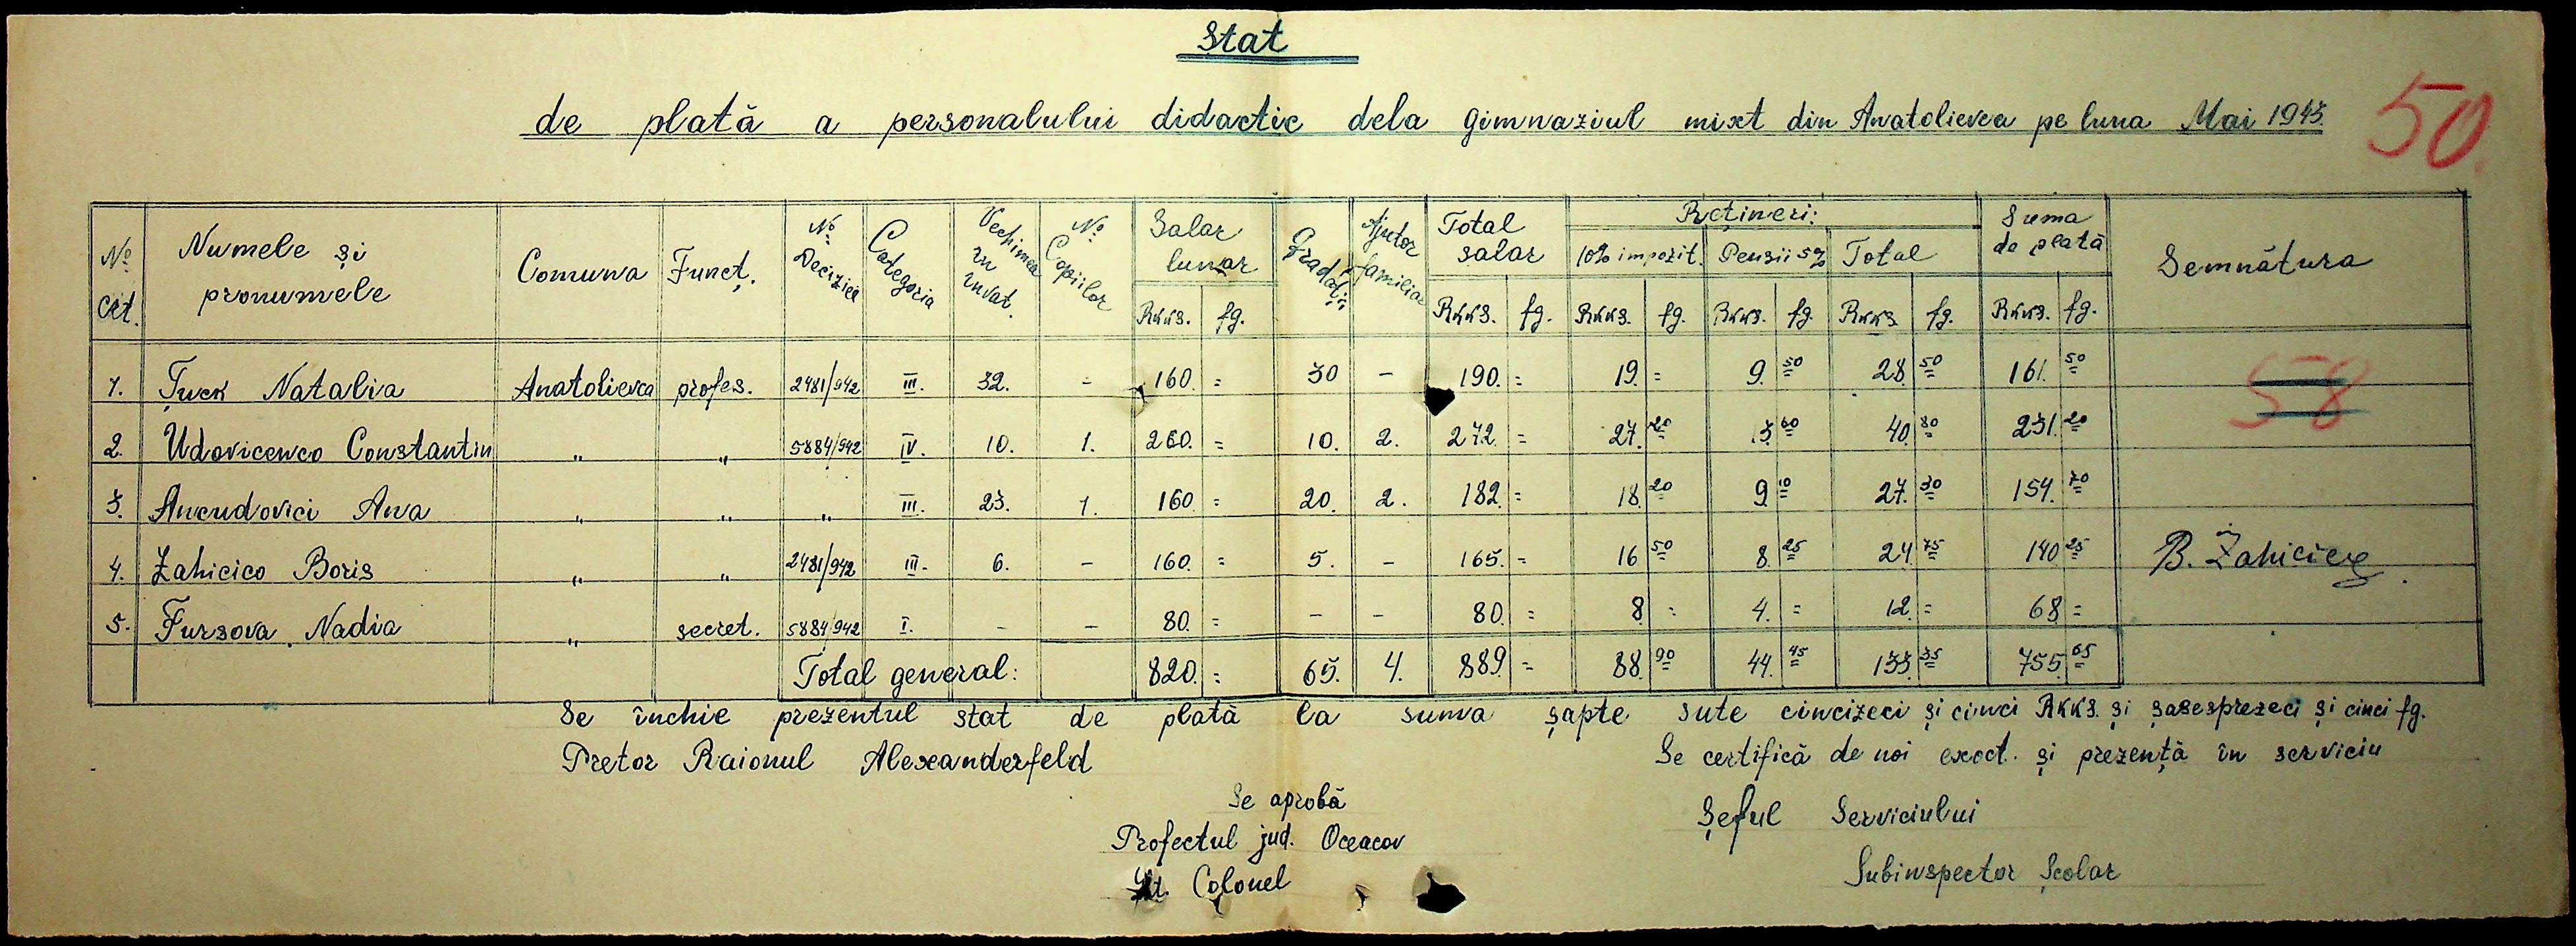 Stat
de plată a personalului didactic dela gimnaziul mixt din Anatolievca pe luna Mai 1943.
50.
No crt. | Numele și pronumele | Comuna | Funcț. | No Deciziei | Categoria | Vechimea în învat. | No Copiilor | Salar lunar | Gradații | Ajutor familiar | Total salar | Rețineri: | Suma de plată | Semnătura
10% impozit. | Pensii 5% | Total
RKKS. | fg. | RKKS. | fg. | RKKS. | fg. | RKKS. | fg. | RKKS | fg. | RKKS. | fg.
1. | Țuck Natalia | Anatolievca | profes. | 2481/942 | III. | 32. | - | 160. | = | 30 | - | 190. | = | 19. | = | 9. | 50 | 28. | 50 | 161. | 50 | 58
2. | Udovicenco Constantin | „ | „ | 5884/942 | IV. | 10. | 1. | 260. | = | 10. | 2. | 272. | = | 27. | 20 | 13. | 60 | 40. | 80 | 231. | 20
3. | Ancudovici Ana | „ | „ | „ | III. | 23. | 1. | 160. | = | 20. | 2. | 182. | = | 18. | 20 | 9. | 10 | 27. | 30 | 154. | 70
4. | Zahicico Boris | „ | „ | 2481/942 | III. | 6. | - | 160. | = | 5. | - | 165. | = | 16 | 50 | 8. | 25 | 24. | 75 | 140 | 25 | B. Zahicico
5. | Fursova Nadia | „ | secret. | 5884/942 | I. | - | - | 80. | = | - | - | 80. | = | 8. | = | 4. | = | 12. | = | 68 | =
Total general: | 820. | = | 65. | 4. | 889. | = | 88. | 90 | 44. | 45 | 133. | 35 | 755. | 65
Se închie prezentul stat de plată la suma șapte sute cincizeci și cinci RKKS. și șasesprezeci și cinci fg.
Pretor Raionul Alexanderfeld
Se certifică de noi exact. și prezență în serviciu
Se aprobă
Șeful Serviciului
Profectul jud. Oceacov
Subinspector Școlar
Lt. Colonel